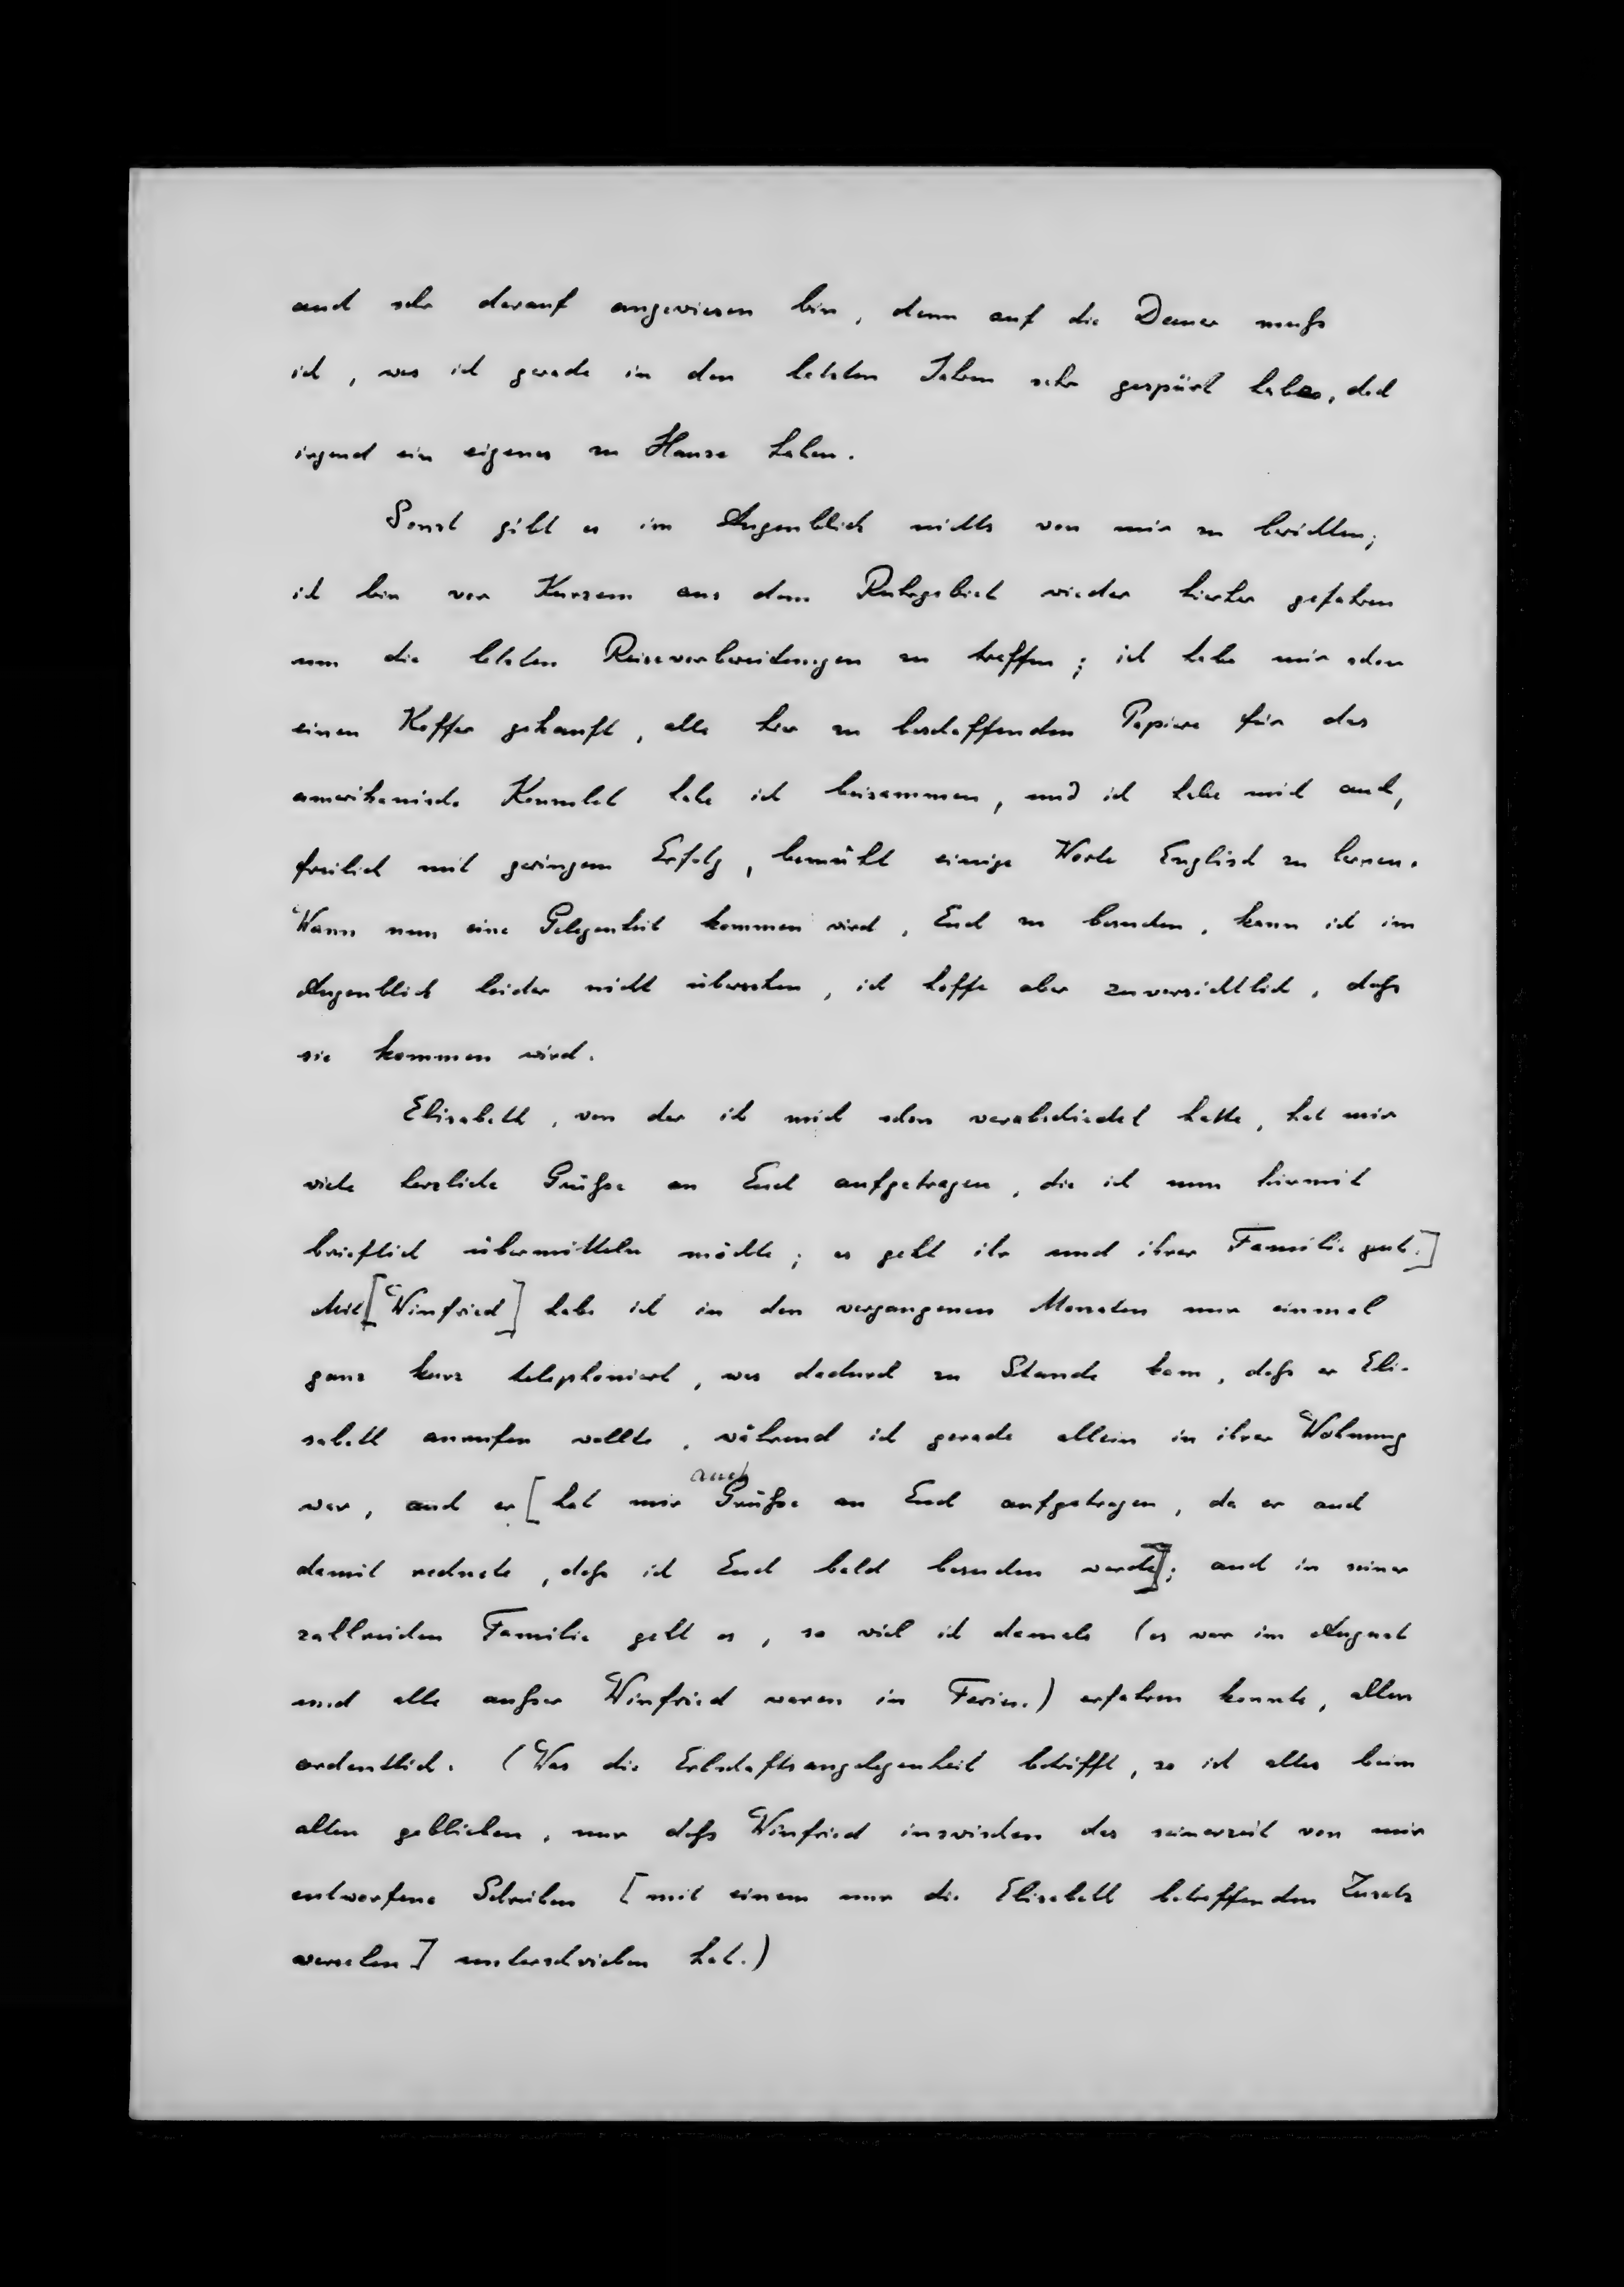 auch sehr darauf angewiesen bin, denn auf die Dauer muß
ich, was ich gerade in den letzten Jahren sehr gespürt habe, doch
irgend ein eigenes zu Hause haben.
Sonst gibt es im Augenblick nichts von mir zu berichten;
ich bin vor Kurzem aus dem Ruhrgebiet wieder hierher gefahren
um die letzten Reisevorbereitungen zu treffen; ich habe mir schon
einen Koffer gekauft, alle hier zu beschaffenden Papiere für das
amerikanische Konsulat habe ich beisammen, und ich habe mich auch,
freilich mit geringem Erfolg, bemüht einige Worte Englisch zu lernen.
Wann nun eine Gelegenheit kommen wird, Euch zu besuchen, kann ich im
Augenblick leider nicht übersehen, ich hoffe aber zuversichtlich, daß
sie kommen wird.
Elisabeth, von der ich mich schon verabschiedet hatte, hat mir
viele herzliche Grüße an Euch aufgetragen, die ich nun hiermit
brieflich übermitteln möchte; es geht ihr und ihrer Familie gut.]
Mit [Winfried] habe ich in den vergangenen Monaten nur einmal
ganz kurz telephoniert, was dadurch zu Stande kam, daß er Eli-
sabeth anrufen wollte, während ich gerade allein in ihrer Wohnung
war, auch er [hat mir auch Grüße an Euch aufgetragen, da er auch
damit rechnete, daß ich Euch bald besuchen werde]; auch in seiner
zahlreichen Familie geht es, so viel ich damals (es war im August
und alle außer Winfried waren in Ferien.) erfahren konnte, allen
ordentlich. (Was die Erbschaftsangelegenheit betrifft, so ist alles beim
alten geblieben, nur daß Winfried inzwischen das seinerzeit von mir
entworfene Schreiben [mit einem nur die Elisabeth betreffenden Zusatz
versehen] unterschrieben hat.)